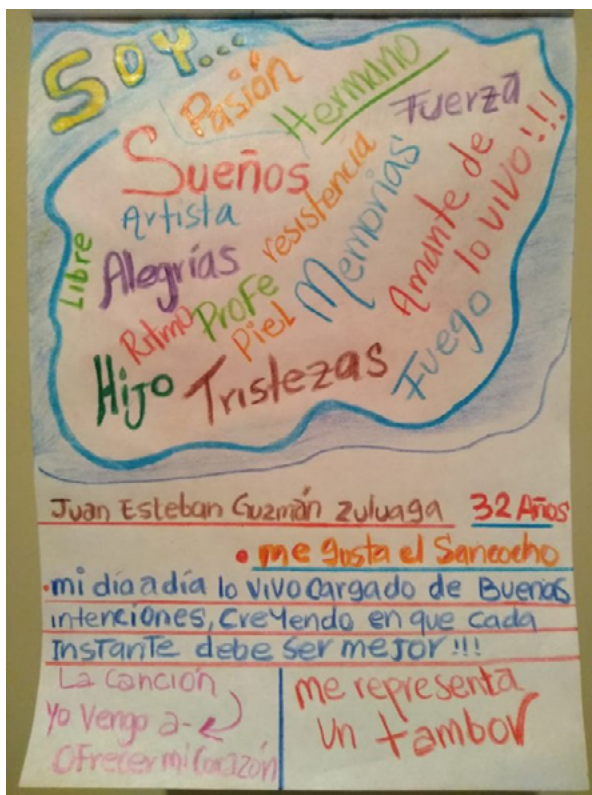 SOY...
Pasión
Hermano
Fuerza
Sueños
resistencia
Memorias
Amante de
lo vivo!!!
Artista
Libre
Alegrías
Ritmo
Profe
Piel
Fuego
Hijo
Tristezas
Juan Esteban Guzmán Zuluaga 32 Años
• me gusta el Sancocho
•mi día a día lo vivo cargado de Buenas
intenciones, creyendo en que cada
instante debe ser mejor!!!
La canción
yo vengo a-
ofrecer mi corazón
me representa
un tambor